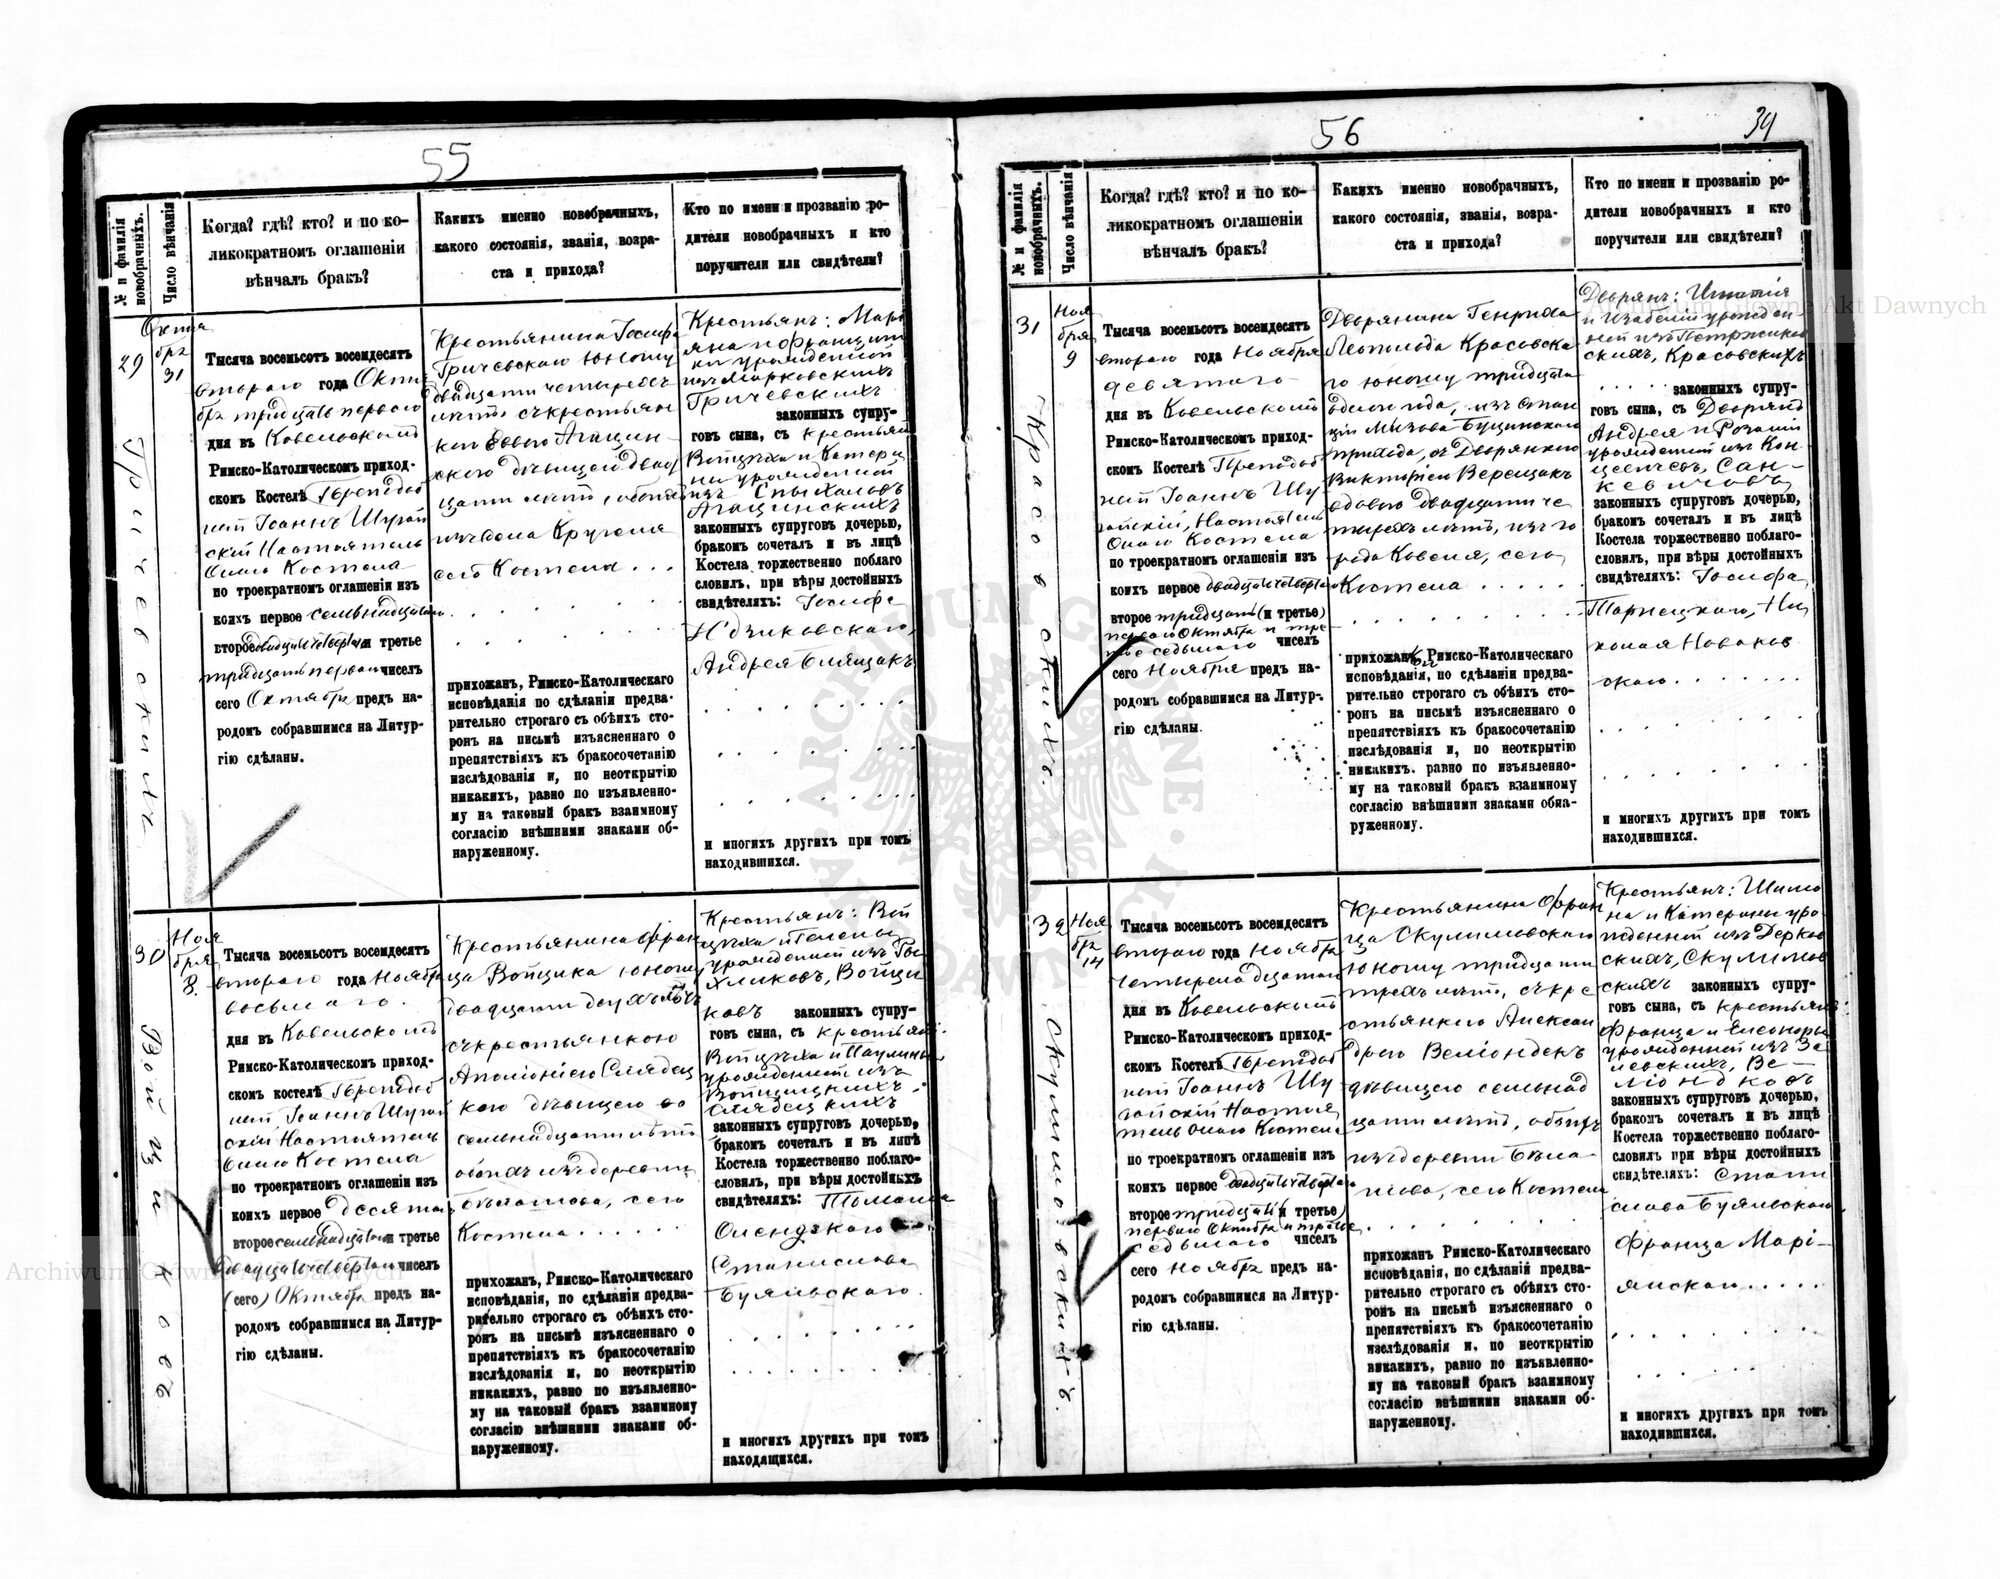 55
№ и фамилія новобрачныхъ.
Число вѣнчанія
Когда? гдѣ? кто? и по ко-
ликократномъ оглашеніи
вѣнчалъ бракъ?
Каких именно новобрачныхъ,
какого состоянія, званія, возра-
ста и прихода?
Кто по имени и прозванію ро-
дители новобрачныхъ и кто
поручители или свидѣтели?
29
Октя
бря
31
Гричевскихъ
Тысяча восемьсотъ восемдесятъ
втораго года Октя
бря тридцать перваго
дня въ Ковельскомъ
Римско-Католическомъ приход-
скомъ Костелѣ Преподоб
ный Іоаннъ Шурай
скій Настоятель
Онаго Костела
по троекратномъ оглашеніи изъ
коихъ первое семьнадцатаго
второе двадцать четвертаго и третье
тридцать перваго чиселъ
сего Октября предъ на-
родомъ собравшимся на Литур-
гію сдѣланы.
Крестьянина Іосифа
Гричевскаго юношу
двадцати четырехъ
лѣтъ съ крестьян
кою
дѣвицею двад
цати лѣтъ, обоихъ
сего Костела . . .
прихожанъ, Римско-Католическаго
исповѣданія по сдѣланіи предва-
рительно строгаго съ обѣихъ сто-
ронъ на письмѣ изъясненнаго о
препятствіяхъ къ бракосочетанію
изслѣдованія и, по неоткрытію
никакихъ, равно по изъявленно-
му на таковый бракъ взаимному
согласію внѣшними знаками об-
наруженному.
Крестьянъ: Марі
яна и Франциш
ки урожденной
изъ Марковскихъ
Гричевскихъ
законныхъ супру-
говъ сына, съ крестьян
Войцѣха и Катери
ны урожденной
изъ Спыхаловъ
законныхъ супруговъ дочерью,
бракомъ сочеталъ и въ лицѣ
Костела торжественно поблаго
словилъ, при вѣры достойныхъ
свидѣтеляхъ: Іосифа
Андрея
и многихъ другихъ при томъ
находившихся.
30
Ноя
бря
8.
Войциковъ
Тысяча восемьсотъ восемдесятъ
втораго года Ноября
восьмаго.
дня въ Ковельскомъ
Римско-Католическомъ приход-
скомъ костелѣ Преподоб
ный Іоаннъ Шурай
скій, Настоятель
Онаго Костела
по троекратномъ оглашеніи изъ
коихъ первое десятаго
второе семьнадцатаго и третье
двадцать четвертаго чиселъ
(сего) Октября предъ на-
родомъ собравшимся на Литур-
гію сдѣланы.
Крестьянина Фран
ца Войцика юношу
двадцати двухъ лѣтъ
съ крестьянкою
Аполоніею Слядец
кою дѣвицею
семьнадцати лѣтъ
обоихъ изъ деревни
сего
Костела . . . . .
прихожанъ, Римско-Католическаго
исповѣданія, по сдѣланіи предва-
рительно строгаго съ обѣихъ сто-
ронъ на письмѣ изъясненнаго о
препятствіяхъ къ бракосочетанію
изслѣдованія и, по неоткрытію
никакихъ, равно по изъявленно-
му на таковый бракъ взаимному
согласію внѣшними знаками об-
наруженному.
Крестьянъ: Вой
цѣха и Гелены
урожденной изъ
Войци
ковъ законныхъ супру-
говъ сына, съ крестьянъ:
Войцѣха и Паулины
урожденной изъ
Войцицкихъ
Слядецкихъ
законныхъ супруговъ дочерью,
бракомъ сочеталъ и въ лицѣ
Костела торжественно поблаго-
словилъ, при вѣры достойныхъ
свидѣтеляхъ: Томаша
Станислова
Буяльскаго
и многихъ другихъ при томъ
находящихся.
56
34
№ и фамилія новобрачныхъ.
Число вѣнчанія
Когда? гдѣ? кто? и по ко-
ликократномъ оглашеніи
вѣнчалъ бракъ?
Какихъ именно новобрачныхъ,
какого состоянія, званія, возра-
ста и прихода?
Кто по имени и прозванію ро-
дители новобрачныхъ и кто
поручители или свидѣтели?
31
Ноя
бря
9
Красовскихъ.
Тысяча восемьсотъ восемдесятъ
втораго года Ноября
девятаго
дня въ Ковельскомъ
Римско-Католическомъ приход-
скомъ Костелѣ Преподоб
ный Іоаннъ Шу
райскій, Настоятель
Онаго Костела
по троекратномъ оглашеніи изъ
коихъ первое двадцать четвертаго
второе тридцать (и третье)
перваго Октября и тре
тье седьмаго чиселъ
сего Ноября предъ на-
родомъ собравшимся на Литур-
гію сдѣланы.
Дворянина Генриха
Леопольда Красовска
го юношу тридцать
одного года,
прихода, съ Дворянкою
Викторіею Верещакъ
вдовою двадцати че
тырехъ лѣтъ, изъ го
рода Ковеля, сего
Костела . . . . .
прихожанъ Римско-Католическаго
исповѣданія, по сдѣланіи предва-
рительно строгаго съ обѣихъ сто-
ронъ на письмѣ изъясненнаго о
препятствіяхъ къ бракосочетанію
изслѣдованія и, по неоткрытію
никакихъ. равно по изъявленно-
му на таковый бракъ взаимному
согласію внѣшними знаками обна-
руженному.
Дворянъ: Игнатія
и Изабеллы урожден-
ной изъ Петржиков
скихъ, Красовскихъ
законныхъ супру-
говъ сына, съ Дворянъ
Андрея и Розаліи
урожденной изъ
Сан-
кевичовъ
законныхъ супруговъ дочерью,
бракомъ сочеталъ и въ лицѣ
Костела торжественно поблаго-
словилъ, при вѣры достойныхъ
свидѣтеляхъ: Іосифа
Тарнецкаго, Ни
колая Новаков
скаго . . . . . . .
и многихъ другихъ при томъ
находившихся.
32
Ноя
бря
14
Скулимовскихъ.
Тысяча восемьсотъ восемдесятъ
втораго года Ноября
четырнадцатаго
дня въ Ковельскомъ
Римско-Католическомъ приход-
скомъ Костелѣ Преподоб
ный Іоаннъ Шу
райскій Настоя
тель Онаго Костела
по троекратномъ оглашеніи изъ
коихъ первое двадцать четвертаго
второе тридцать (и третье)
перваго Октября и третье
седьмаго чиселъ
сего Ноября предъ на-
родомъ собравшимся на Литур-
гію сдѣланы.
Крестьянина Фран
ца Скулимовскаго
юношу тридцати
трехъ лѣтъ, съ кре
стьянкою Алексан
дрою Веліондекъ
дѣвицею семьнад
цати лѣтъ, обоихъ
изъ деревни
сего Костела
прихожанъ Римско-Католическаго
исповѣданія, по сдѣланій предва-
рительно строгаго съ обѣихъ сто-
ронъ на письмѣ изъясненнаго о
препятствіяхъ къ бракосочетанію
изслѣдованія и, по неоткрытію
никакихъ, равно по изъявленно-
му на таковый бракъ взаимному
согласію внѣшними знаками об-
наруженному.
Крестьянъ: Шимо
на и Катерины уро-
жденной изъ Держов
скихъ, Скулимов
скихъ законныхъ супру-
говъ сына, съ крестьянъ:
Франца и Елеоноры
урожденной изъ За
левскихъ, Ве-
ліондковъ
законныхъ супруговъ дочерью,
бракомъ сочеталъ и въ лицѣ
Костела торжественно поблаго-
словилъ при вѣры достойныхъ
свидѣтеляхъ: Стани
слава Буяльскаго
Франца Марі-
янскаго . . . . .
и многихъ другихъ при томъ
находившихся.
Archiwum Główne Akt Dawnych
Archiwum Główne Akt Dawnych